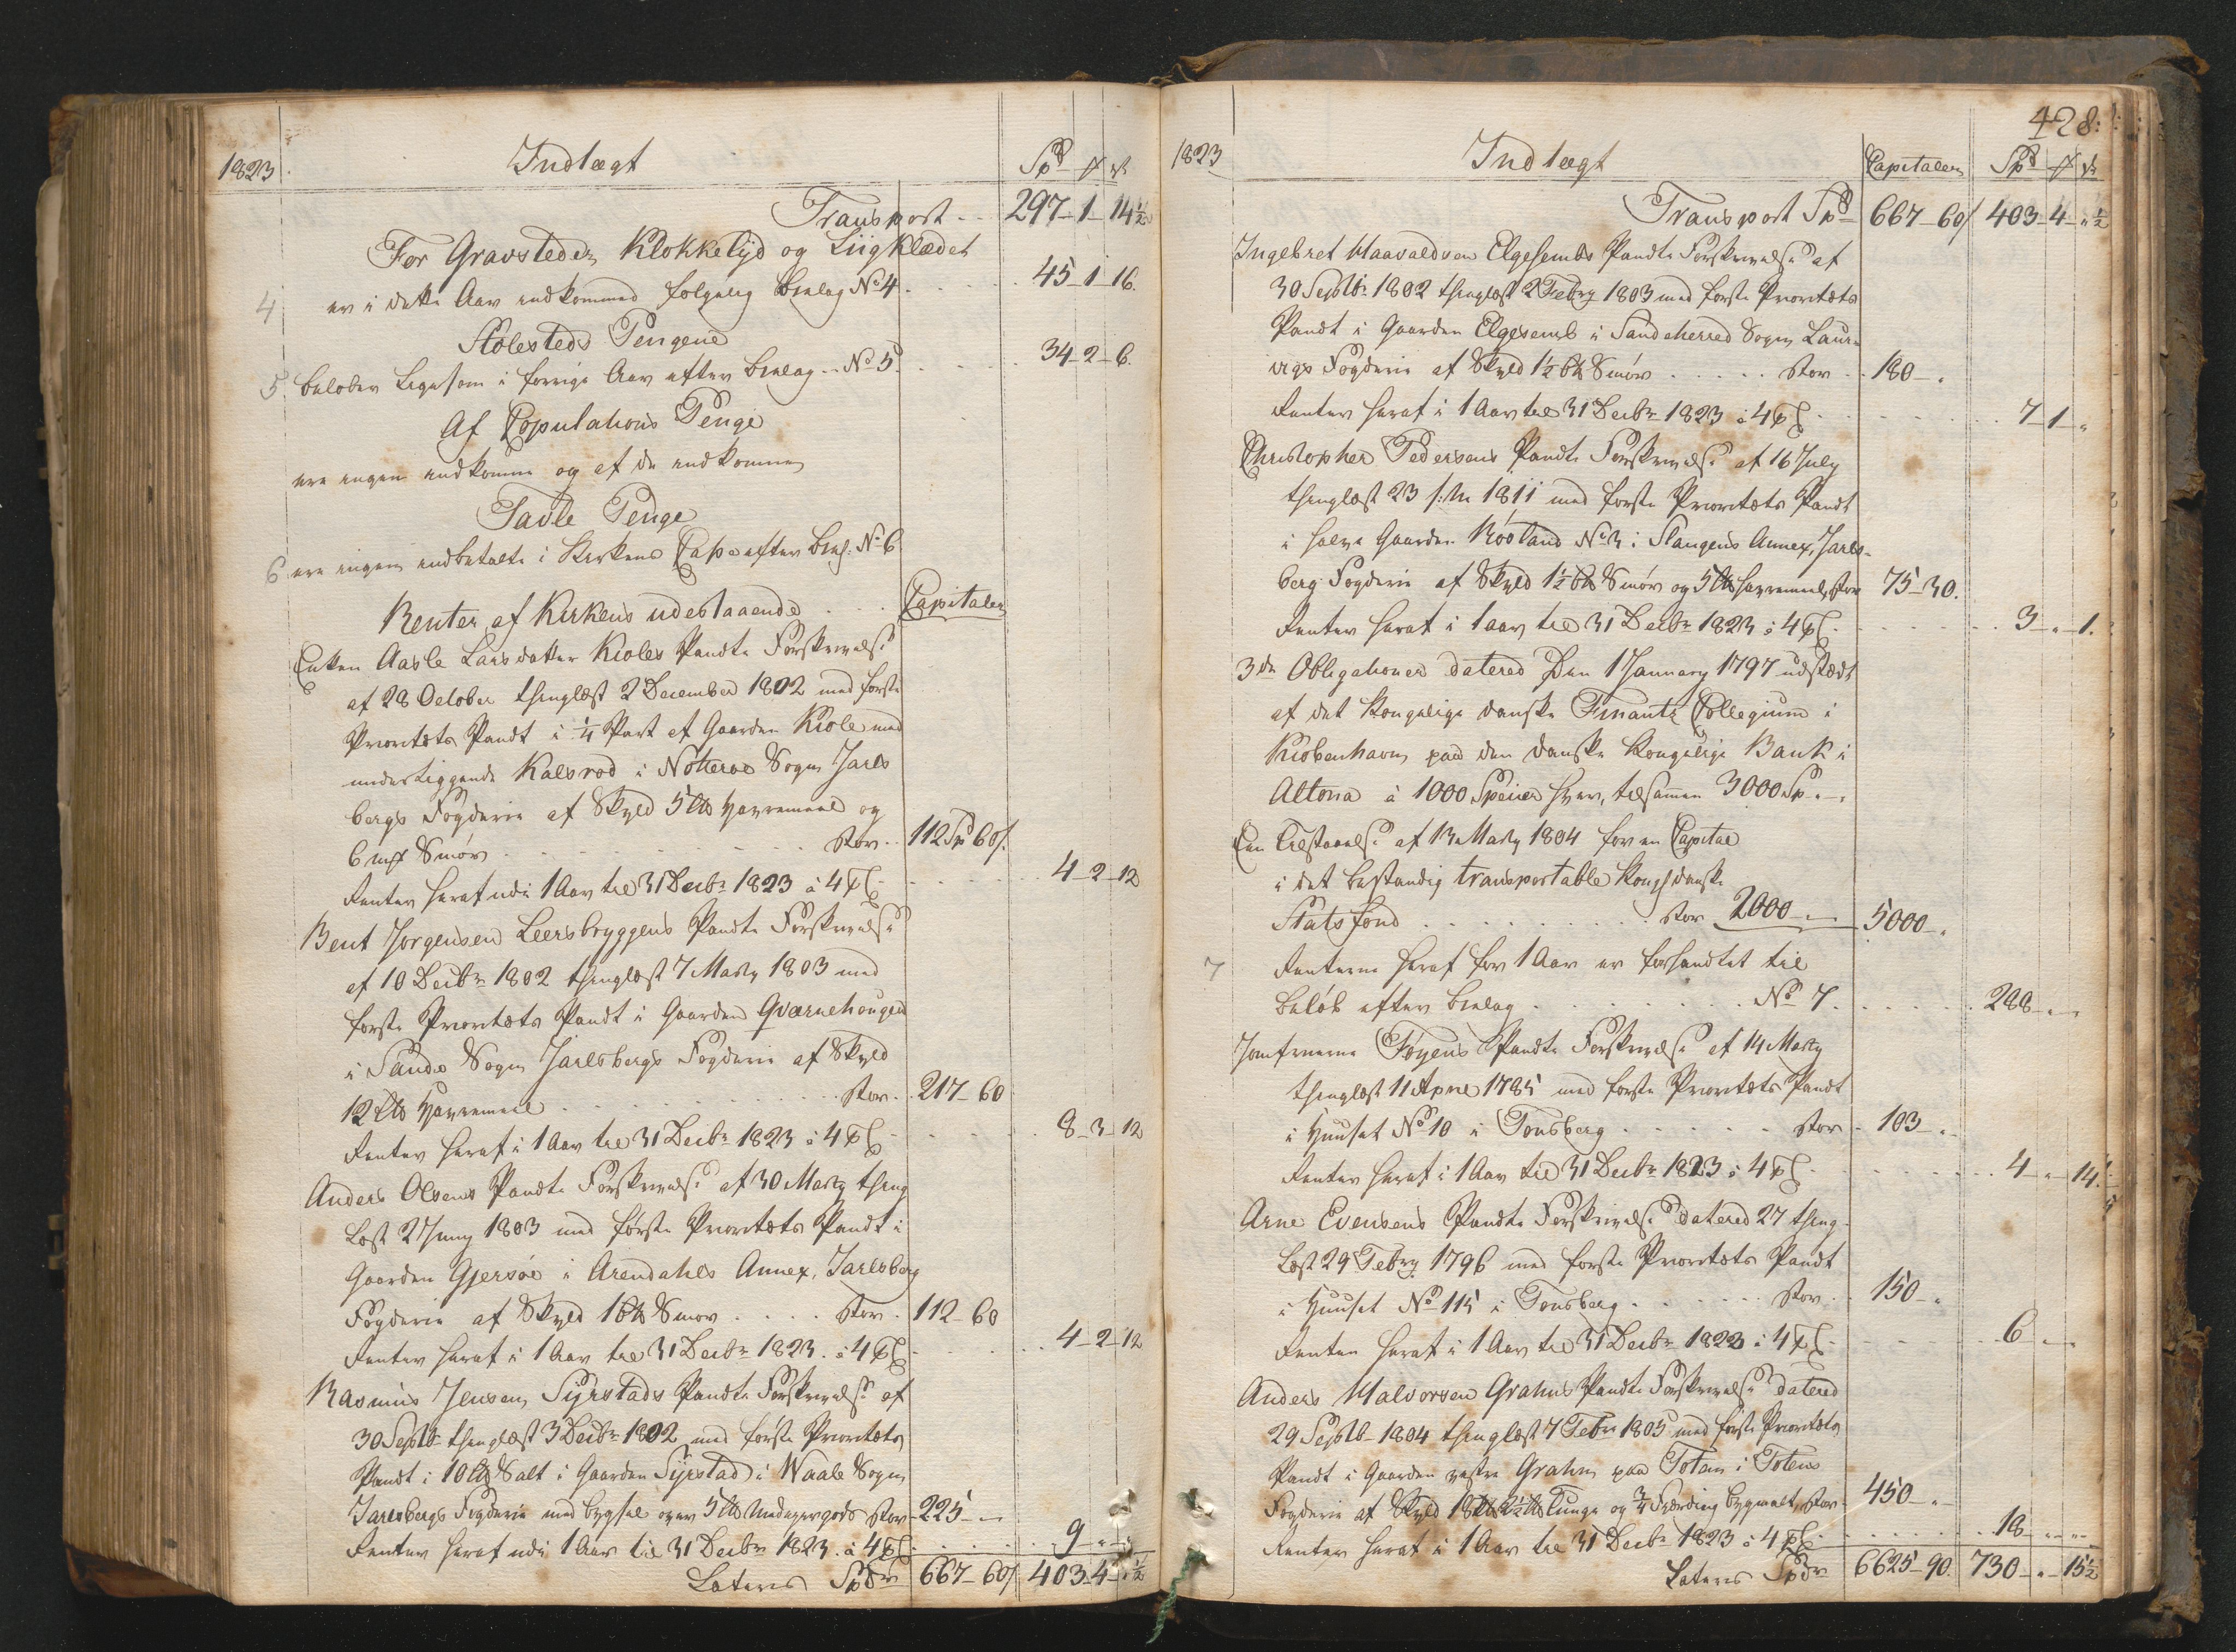 1823. Indtægt Spd ß
Transport 297 - 1 - 14½
For Gravsteder, Klokkelyd og Liigklædet
4 er i dette Aar indkommed følgelig Bielag No 4. 45 - 1 - 16.
Stolesteds Pengene
5. beløber ligesom i forrige Aar efter Bielag No 5. 34 - 2 - 6.
Af Copulations Penge
ere ingen indkomne og af de indkomne
Tavle Penge
6. ere ingen indbetalte i Kirkens Casse efter Biel. No 6
Renter af Kirkens udestaaende Capitaler
Enken Aasle Larsdatter Kioles Pandte Forskrivelse
af 28 October thinglæst 2 December 1802 med første
Prioritets Pandt i ¼ Part af Gaarden Kiole med
underliggende Kalsrod i Nøtterøe Sogn Jarls
bergs Fogderie af Skyld 5 Havremeel og
6 Smør stor 112 Spd 60 ß.
Renter heraf udi 1 Aar til 31 Decbr 1823 à 4 pC 4 - 2 - 12
Bent Jørgensen Leersbryggens Pandte Forskrivelse
af 10 Decbr 1802 thinglæst 7 Marty 1803 med
første Prioritets Pandt i Gaarden Qvarnehougen
i Sande Sogn Jarlsbergs Fogderie af Skyld
12 Havremeel stor 217 - 60
Renter heraf i 1 Aar til 31 Decbr 1823 à 4 pC 8 - 3 - 12
Anders Olsens Pandte Forskrivelse af 30 Marty thing
læst 2 Juny 1803 med første Prioritets Pandt i
Gaarden Gjersøe i Arendahls Annex, Jarlsberg
Fogderie af Skyld 1 Smør stor 112 - 60
Renter heraf i 1 Aar til 31 Decbr 1823. à 4 pC 4 - 2 - 12
Rasmus Jensen Syrstads Pandte Forskrivelse af
30 Septbr thinglæst 3 Decbr 1802 med første Prioritets
Pandt i 10 Salt i Gaarden Syrstad i Waale Sogn
Jarlsbergs Fogderie med bygsel over 5 stor 225 -
Renter heraf udi 1 Aar til 31 Decbr 1823. à 4 pC 9 - " - "
Lateris Spdr 667 - 60 ß 403 - 4 - " ½
428.
1823 Indtægt Capitaler Spd ß
Transport Spd 667 - 60 ß 403 - 4 - " ½
Ingebret Haavaldsen Elgesembs Pandte Forskrivelse af
30 Septbr 1802 thinglæst 2 Febry 1803 med første Prioritets
Pandt i Gaarden Elgesemb i Sandeherred Sogn Laur-
vigs Fogderie af Skyld 1½ Smør stor 180 - "
Renter heraf i 1 Aar til 31 Decbr 1823 à 4 pC 7 - 1 - "
Christopher Pedersens Pandte Forskrivelse af 16 July
thinglæst 23 s: M: 1811 med første Prioritets Pandt
i halve Gaarden Røsland No 3 i Slangens Annex, Jarls-
berg Fogderie af Skyld 1½ Smør og 5 Havremeel, stor 75 - 30.
Renter heraf i 1 Aar til 31 Decbr 1823 à 4 pC 3 - " - 1.
3de Obligationer datered Den 1 January 1797 udstædt
af det kongelige danske Finantz Collegium i
Kiøbenhavn paa den danske kongelige Bank i
Altona à 1000 Specier hver, tilsamen 3000 Sp "
En Tilstaaelse af 13 Marty 1804 for en Capital
i det bestandig transportable Kongl danske
Stats fond stor 2000 - 5000 - "
7 Renterne heraf for 1 Aar er forhandlet til
Beløb efter Bielag No 7. 288 - " - "
Jomfruerne Føyens Pandte Forskrivelse af 14 Marty
thinglæst 11 April 1785 med første Prioritets Pandt
i Huuset No 10 i Tonsberg stor 103 - "
Renter heraf i 1 Aar til 31 Decbr 1823 à 4 pC 4 - " - 14.
Arne Evensens Pandte Forskrivelse datered 27 thing-
læst 29 Febry 1796 med første Prioritets Pandt
i Huuset No 115 i Tonsberg stor 150 - "
Renter heraf i 1 Aar til 31 Decbr 1823 à 4 pC 6 - " - "
Anders Halvorsen Grahns Pandte Forskrivelse datered
29 Septb 1804 thinglæst 7 Febr 1805 med første Prioritets
Pandt i Gaarden vestre Grahn paa Toten i Totens
Fogderie af Skyld Tunge og ¾ Fierding bygmalt, stor 450 - "
Renter heraf i 1 Aar til 31 Decbr 1823 à 4 pC 18 - " - "
Lateris Spdr 6625 - 90. 730 - " - 15½